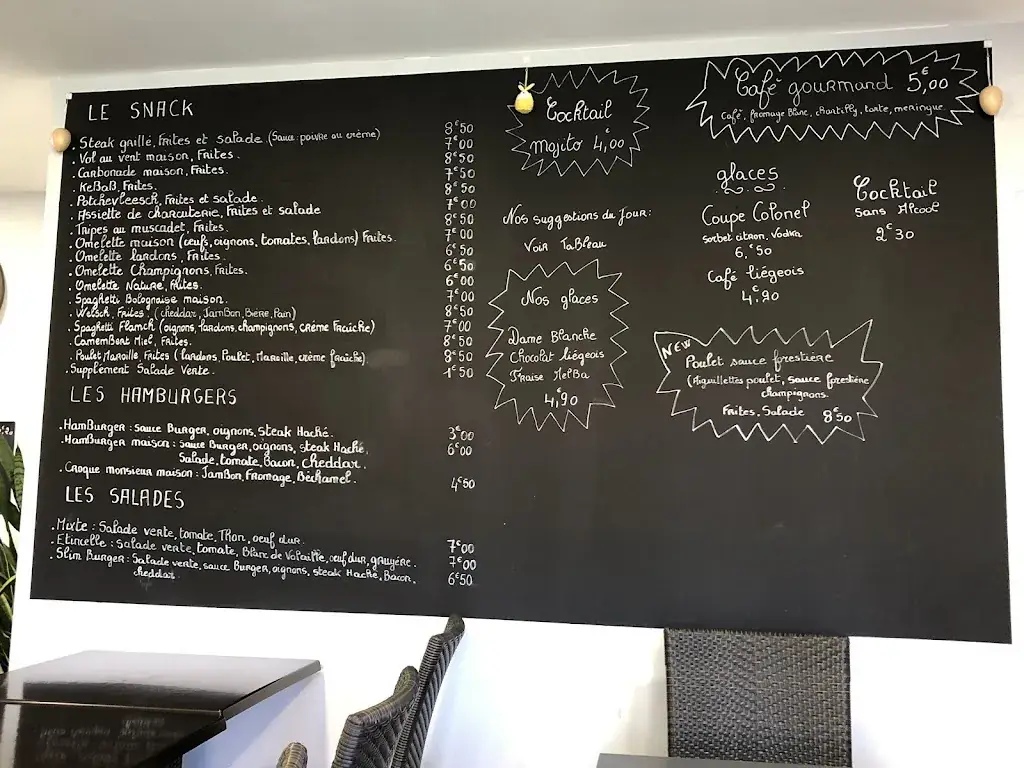 LE SNACK
. Steak grillé, Frites et salade. (Sauce: poivre ou crème) 8€50
. Vol au vent maison, Frites. 7€00
. Carbonade maison, Frites. 8€50
. KeBaB, Frites. 7€50
. Potchevleesch, Frites et salade. 8€50
. Assiette de charcuterie, Frites et salade 7€00
. Tripes au muscadet, Frites. 8€50
. Omelette maison (oeufs, oignons, tomates, lardons) Frites. 7€00
. Omelette lardons, Frites. 6€50
. Omelette Champignons, Frites. 6€50
. Omelette Nature, Frites. 6€00
. Spaghetti Bolognaise maison. 7€00
. Welsch, Frites (cheddar, JamBon, Bière, Pain) 8€50
. Spaghetti Flamch (oignons, lardons, champignons, crème Fraîche) 7€00
. CamemBert Miel, Frites. 8€50
. Poulet Maroille, Frites (lardons, Poulet, Maroille, crème fraîche) 8€50
. Supplément Salade Verte. 1€50
LES HAMBURGERS
. HamBurger : sauce Burger, oignons, Steak Haché. 3€00
. HamBurger maison : sauce Burger, oignons, steak Haché, 6€00
Salade, tomate, Bacon, cheddar.
. Croque monsieur maison : JamBon, Fromage, Béchamel. 4€50
LES SALADES
. Mixte : Salade verte, tomate, Thon, oeuf dur. 7€00
. Etincelle : salade verte, tomate, Blanc de Volaille, oeuf dur, gruyère. 7€00
. Slim Burger : Salade verte, sauce Burger, oignons, steak Haché, Bacon, 6€50
cheddar.
Cocktail
Mojito 4€,00
Nos suggestions du Jour :
Voir TaBleau
Nos glaces
Dame Blanche
Chocolat liégeois
Fraise MelBa
4€,90
Café gourmand 5€,00
Café, fromage Blanc, chantilly, tarte, meringue
glaces
Coupe Colonel
sorbet citron, Vodka
6€,50
Café liégeois
4€,90
Cocktail
Sans Alcool
2€30
NEW
Poulet sauce forestière
(Aiguillettes poulet, sauce forestière
champignons.
Frites, Salade 8€50